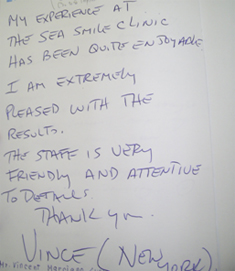 MY EXPERIENCE AT
THE SEA SMILE CLINIC
HAS BEEN QUITE ENJOYABLE
I AM EXTREMELY
PLEASED WITH THE
RESULTS.
THE STAFF IS VERY
FRIENDLY AND ATTENTIVE
TO DETAILS
THANK YOU.
VINCE (NEW
YORK).
Mr. Vincent